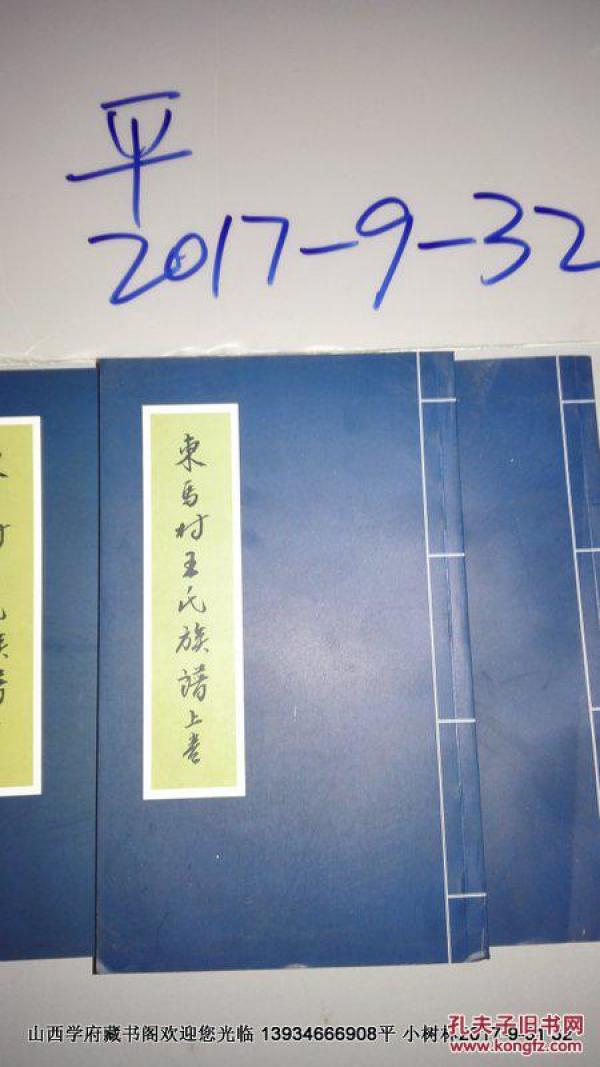 平
2017-9-32
東馬村王氏族譜上卷
村
族譜
山西学府藏书阁欢迎您光临 13934666908平 小树林2017-9-31 32
孔夫子旧书网
www.kongfz.com